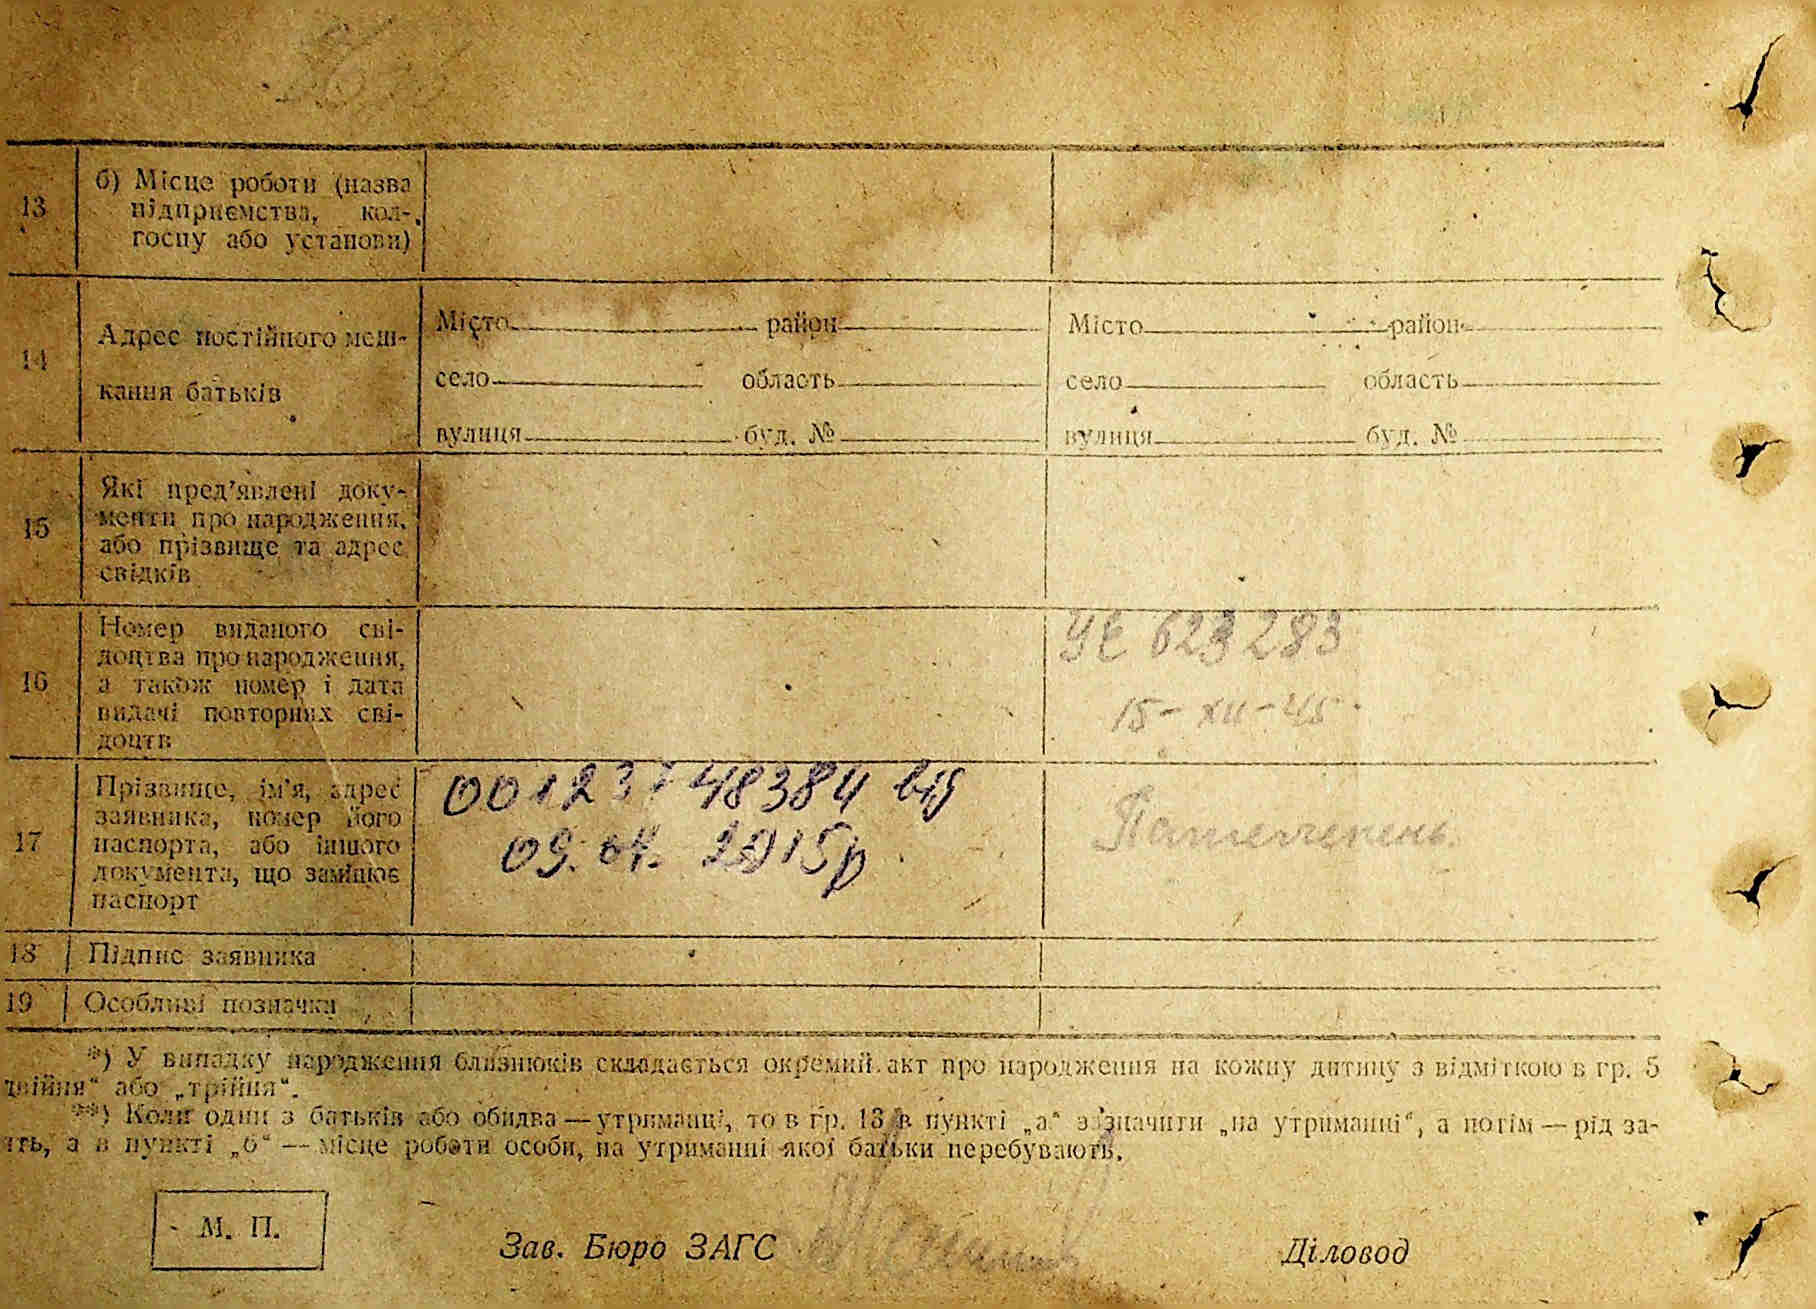 13
б) Місце роботи (назва
підприємства, кол-
госпу або установи)
14
Адрес постійного меш-
кання батьків
Місто район
село область
вулиця буд. №
Місто район
село область
вулиця буд. №
15
Які пред'явлені доку-
менти про народження,
або прізвище та адрес
свідків
16
Номер виданого сві-
доцтва про народження,
а також номер і дата
видачі повторних сві-
доцтв
УЕ 623283
15-XII-45
17
Прізвище, ім'я, адрес
заявника, номер його
паспорта, або іншого
документа, що заміщює
паспорт
00123748384 від
09.04.2015р
18 Підпис заявника
19 Особливі позначки
*) У випадку народження близнюків складається окремий акт про народження на кожну дитину з відміткою в гр. 5
двійня“ або „трійня“.
**) Коли один з батьків або обидва — утриманці, то в гр. 13 в пункті „а“ зазначити „на утриманні“, а потім — рід за-
ять, а в пункті „б“ — місце роботи особи, на утриманні якої батьки перебувають.
М. П.
Зав. Бюро ЗАГС
Діловод